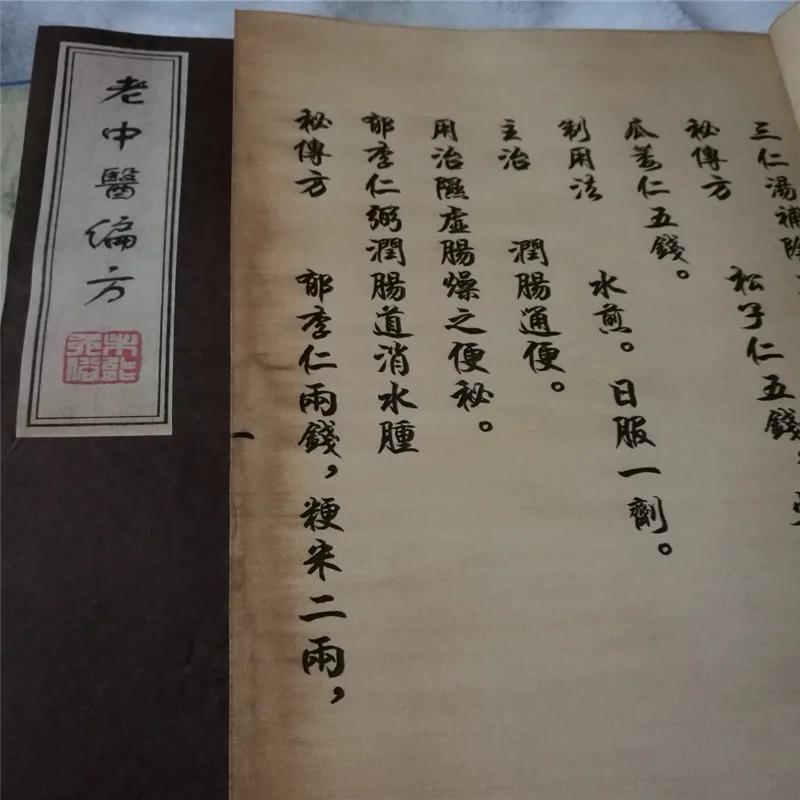 三仁湯補
秘傳方 松子仁五錢，
瓜蔞仁五錢。
制用法 水煎。日服一劑。
主治 潤腸通便。
用治陰虛腸燥之便秘。
郁李仁粥潤腸道消水腫
秘傳方 郁李仁兩錢，粳米二兩，
老中醫偏方